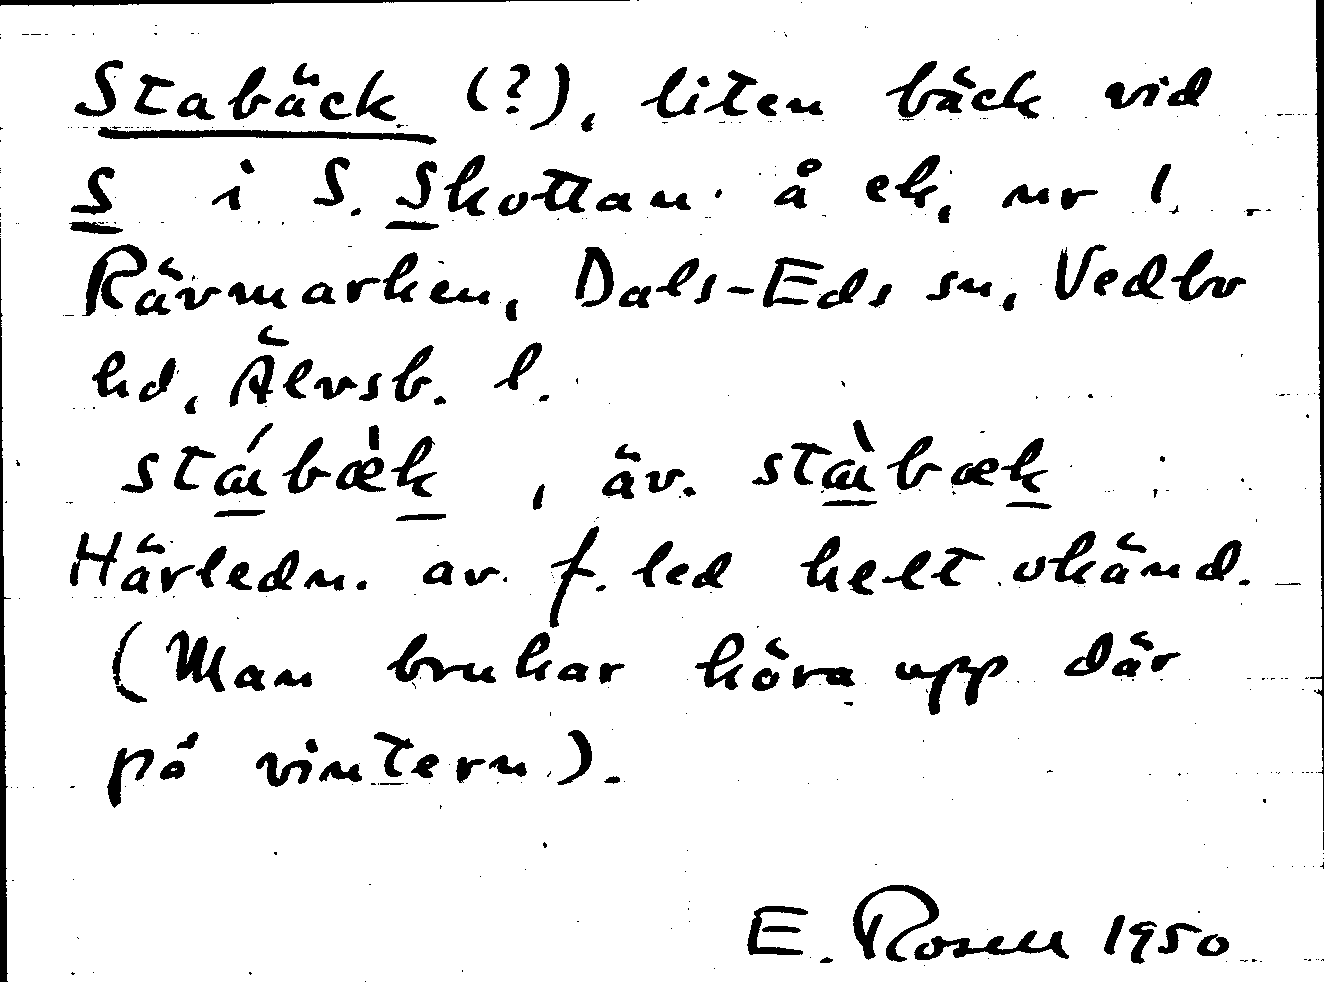 Stabäck (?), liten bäck vid
S i S. Skottan å ek, nr 1
Rävmarken, Dals-Eds sn, Vedbo
hd, Älvsb. l.
stábæ̀k, äv. stàbæk
Härledn. av f. led helt okänd.
(Man brukar köra upp där
på vintern).
E. Rosell 1950